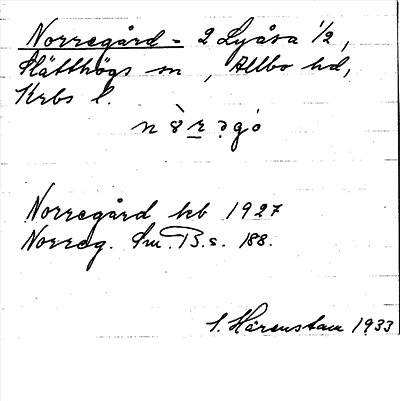 Norregård - 2 Lyåsa 1/2,
Slätthögs sn, Allbo hd,
Krbs l.
Norregård kb 1927
Norreg. Sm. B. s. 188.
S. Härenstam 1933